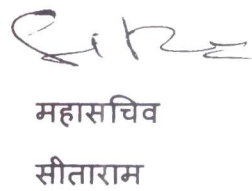 महासचिव
सीताराम